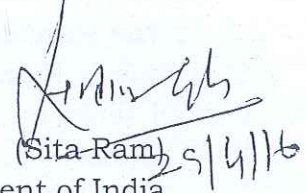 (Sita Ram)
25/4/16
ent of India